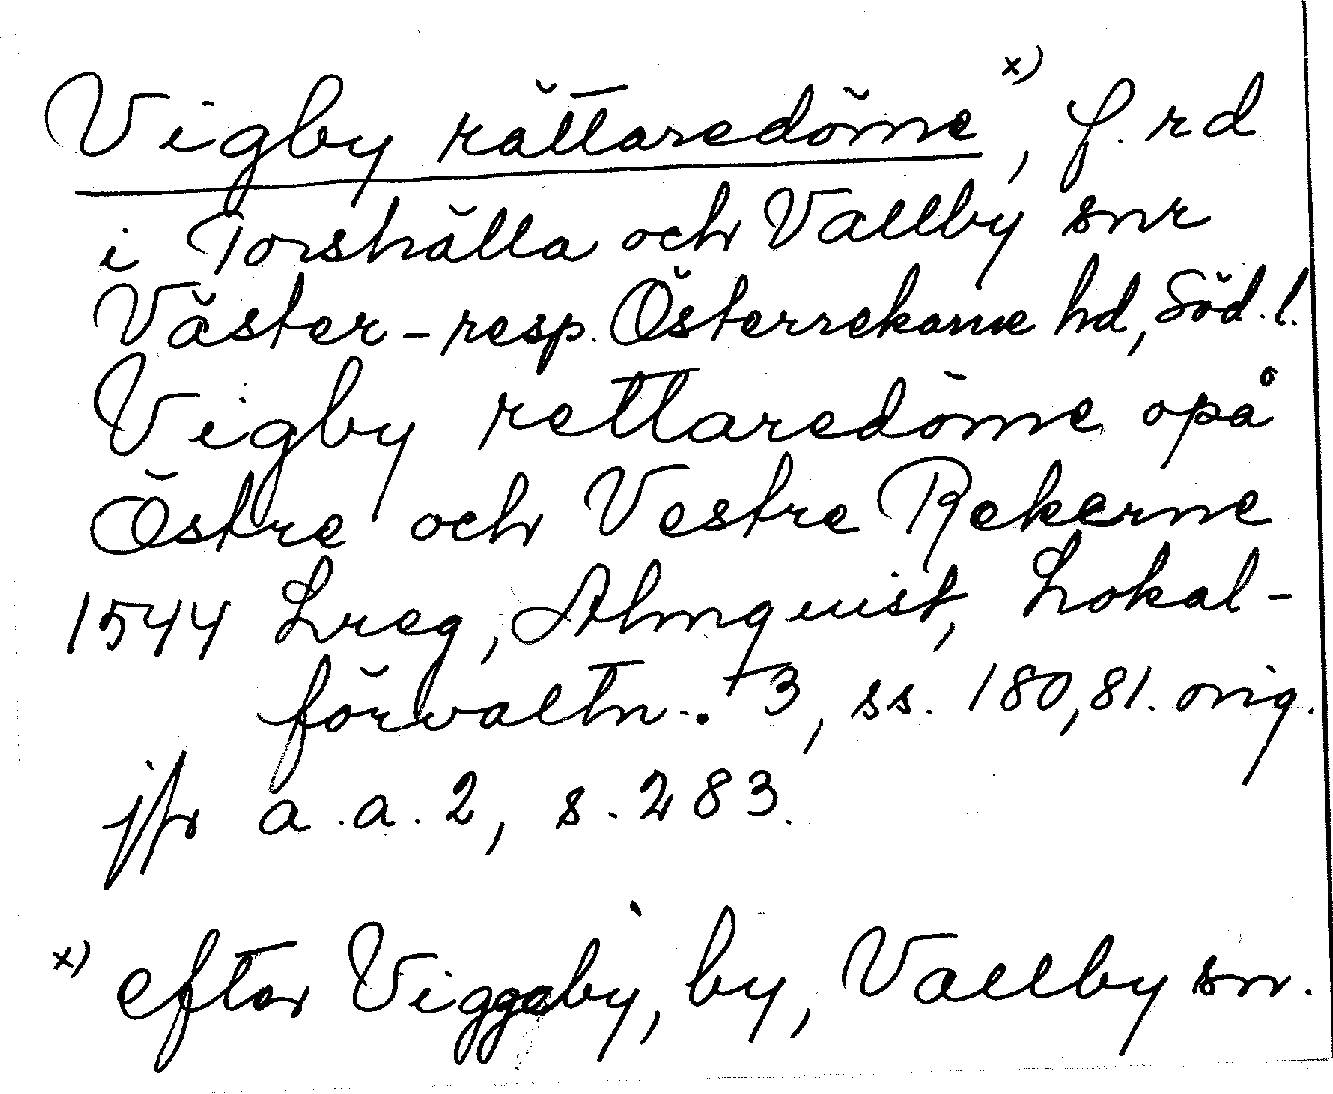 Vigby rättaredöme x), f. rd
i Torshälla och Vallby snr
Väster- resp. Österrekarne hd, Söd. l.
Vigby rettaredöme opå
Östre och Vestre Rekerne
1544 Lreg, Almquist, Lokal-
förvaltn. 3, ss. 180, 81. orig.
jfr a.a. 2, s. 283.
x) efter Viggeby, by, Vallby sn.